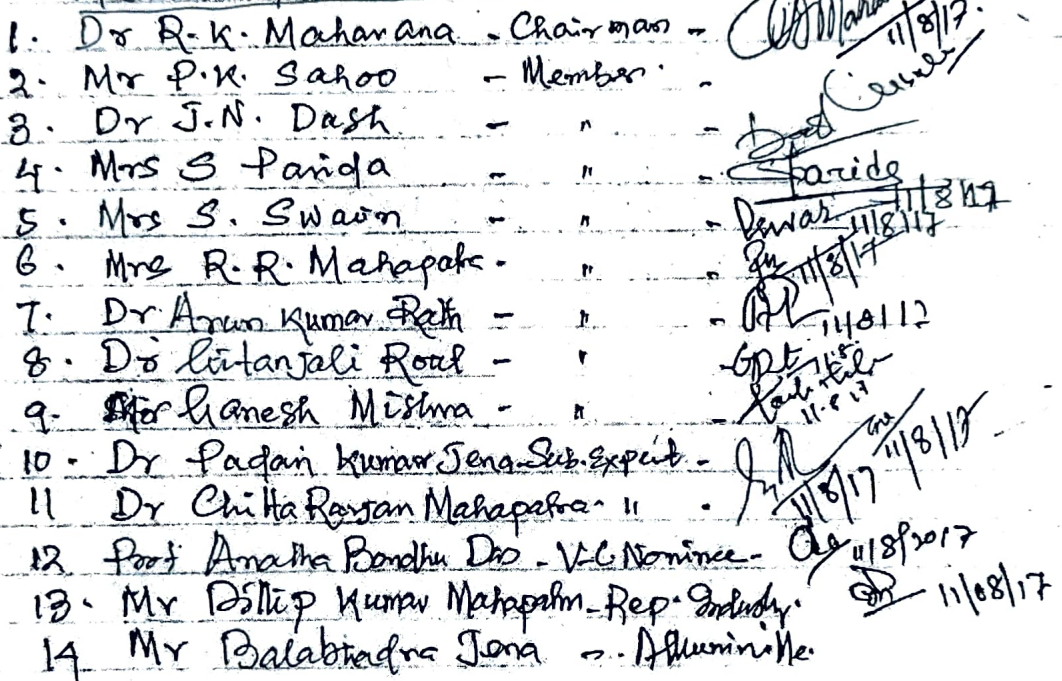 1. Dr R.K. Maharana - Chairman - 11/8/17.
2. Mr P.K. Sahoo - Member. -
3. Dr J.N. Dash - " - Dash
4. Mrs S Parida - " - SParida 11/8/17
5. Mrs S. Swain - " - 11/8/17
6. Mrs R.R. Mahapatra - " - 11/8/17
7. Dr Arun Kumar Rath - " - 11/8/17
8. Dr Gitanjali Rout - "
9. Mr Ganesh Mishra - " - 11.8.17
10. Dr Padan Kumar Jena - Sub. Expert - 11/8/17
11 Dr Chitta Ranjan Mahapatra - 11 - 11/8/17
12 Prof Anatha Bandhu Das - V-C Nominee - 11/8/2017
13. Mr Dillip Kumar Mahapatra - Rep. Industry. 11/08/17
14 Mr Balabhadra Jena -